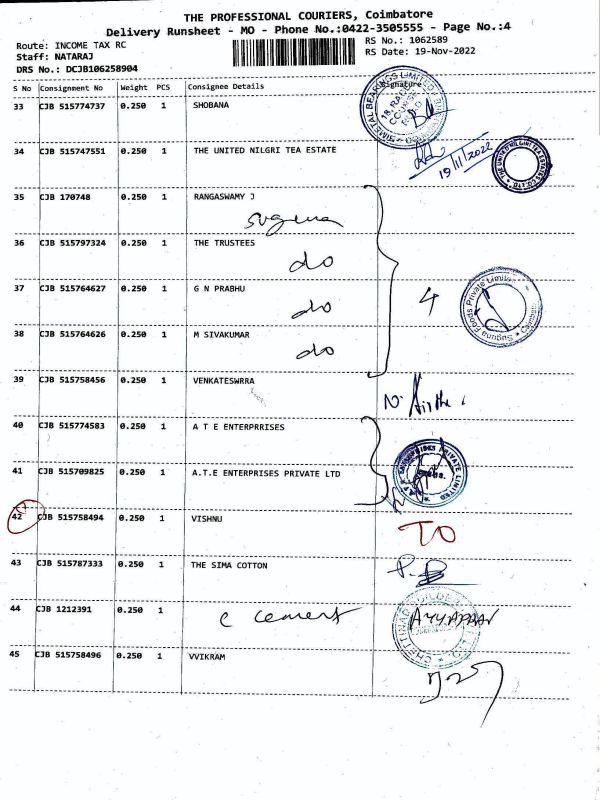 THE PROFESSIONAL COURIERS, Coimbatore
Delivery Runsheet - MO - Phone No.:0422-3505555 - Page No.:4
Route: INCOME TAX RC
RS No.: 1062589
Staff: NATARAJ
RS Date: 19-Nov-2022
DRS No.: DCJB106258904
S No Consignment No Weight PCS Consignee Details Signature
33 CJB 515774737 0.250 1 SHOBANA
34 CJB 515747551 0.250 1 THE UNITED NILGRI TEA ESTATE
19/11/2022
35 CJB 170748 0.250 1 RANGASWAMY J
suguna
36 CJB 515797324 0.250 1 THE TRUSTEES
do
37 CJB 515764627 0.250 1 G N PRABHU
do
4
Suguna Foods Private Limited
38 CJB 515764626 0.250 1 M SIVAKUMAR
do
39 CJB 515758456 0.250 1 VENKATESWRRA
40 CJB 515774583 0.250 1 A T E ENTERPRRISES
41 CJB 515709825 0.250 1 A.T.E ENTERPRISES PRIVATE LTD
42 CJB 515758494 0.250 1 VISHNU
TO
43 CJB 515787333 0.250 1 THE SIMA COTTON
44 CJB 1212391 0.250 1
c cement
AYYAPPAN
45 CJB 515758496 0.250 1 VVIKRAM